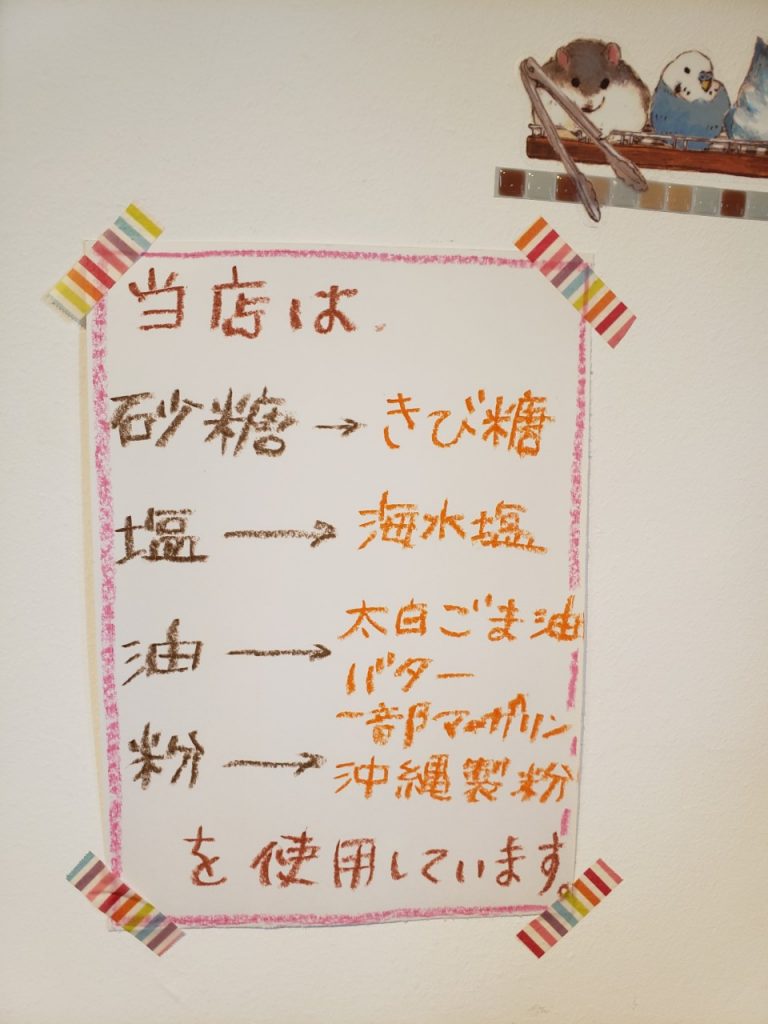 当店は、
砂糖→きび糖
塩→海水塩
油→太白ごま油
バター
一部マーガリン
粉→沖縄製粉
を使用しています。